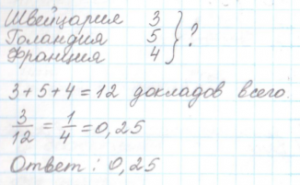 Швейцария 3
Голандия 5 } ?
Франция 4
3+5+4=12 докладов всего
3/12 = 1/4 = 0,25
Ответ: 0,25